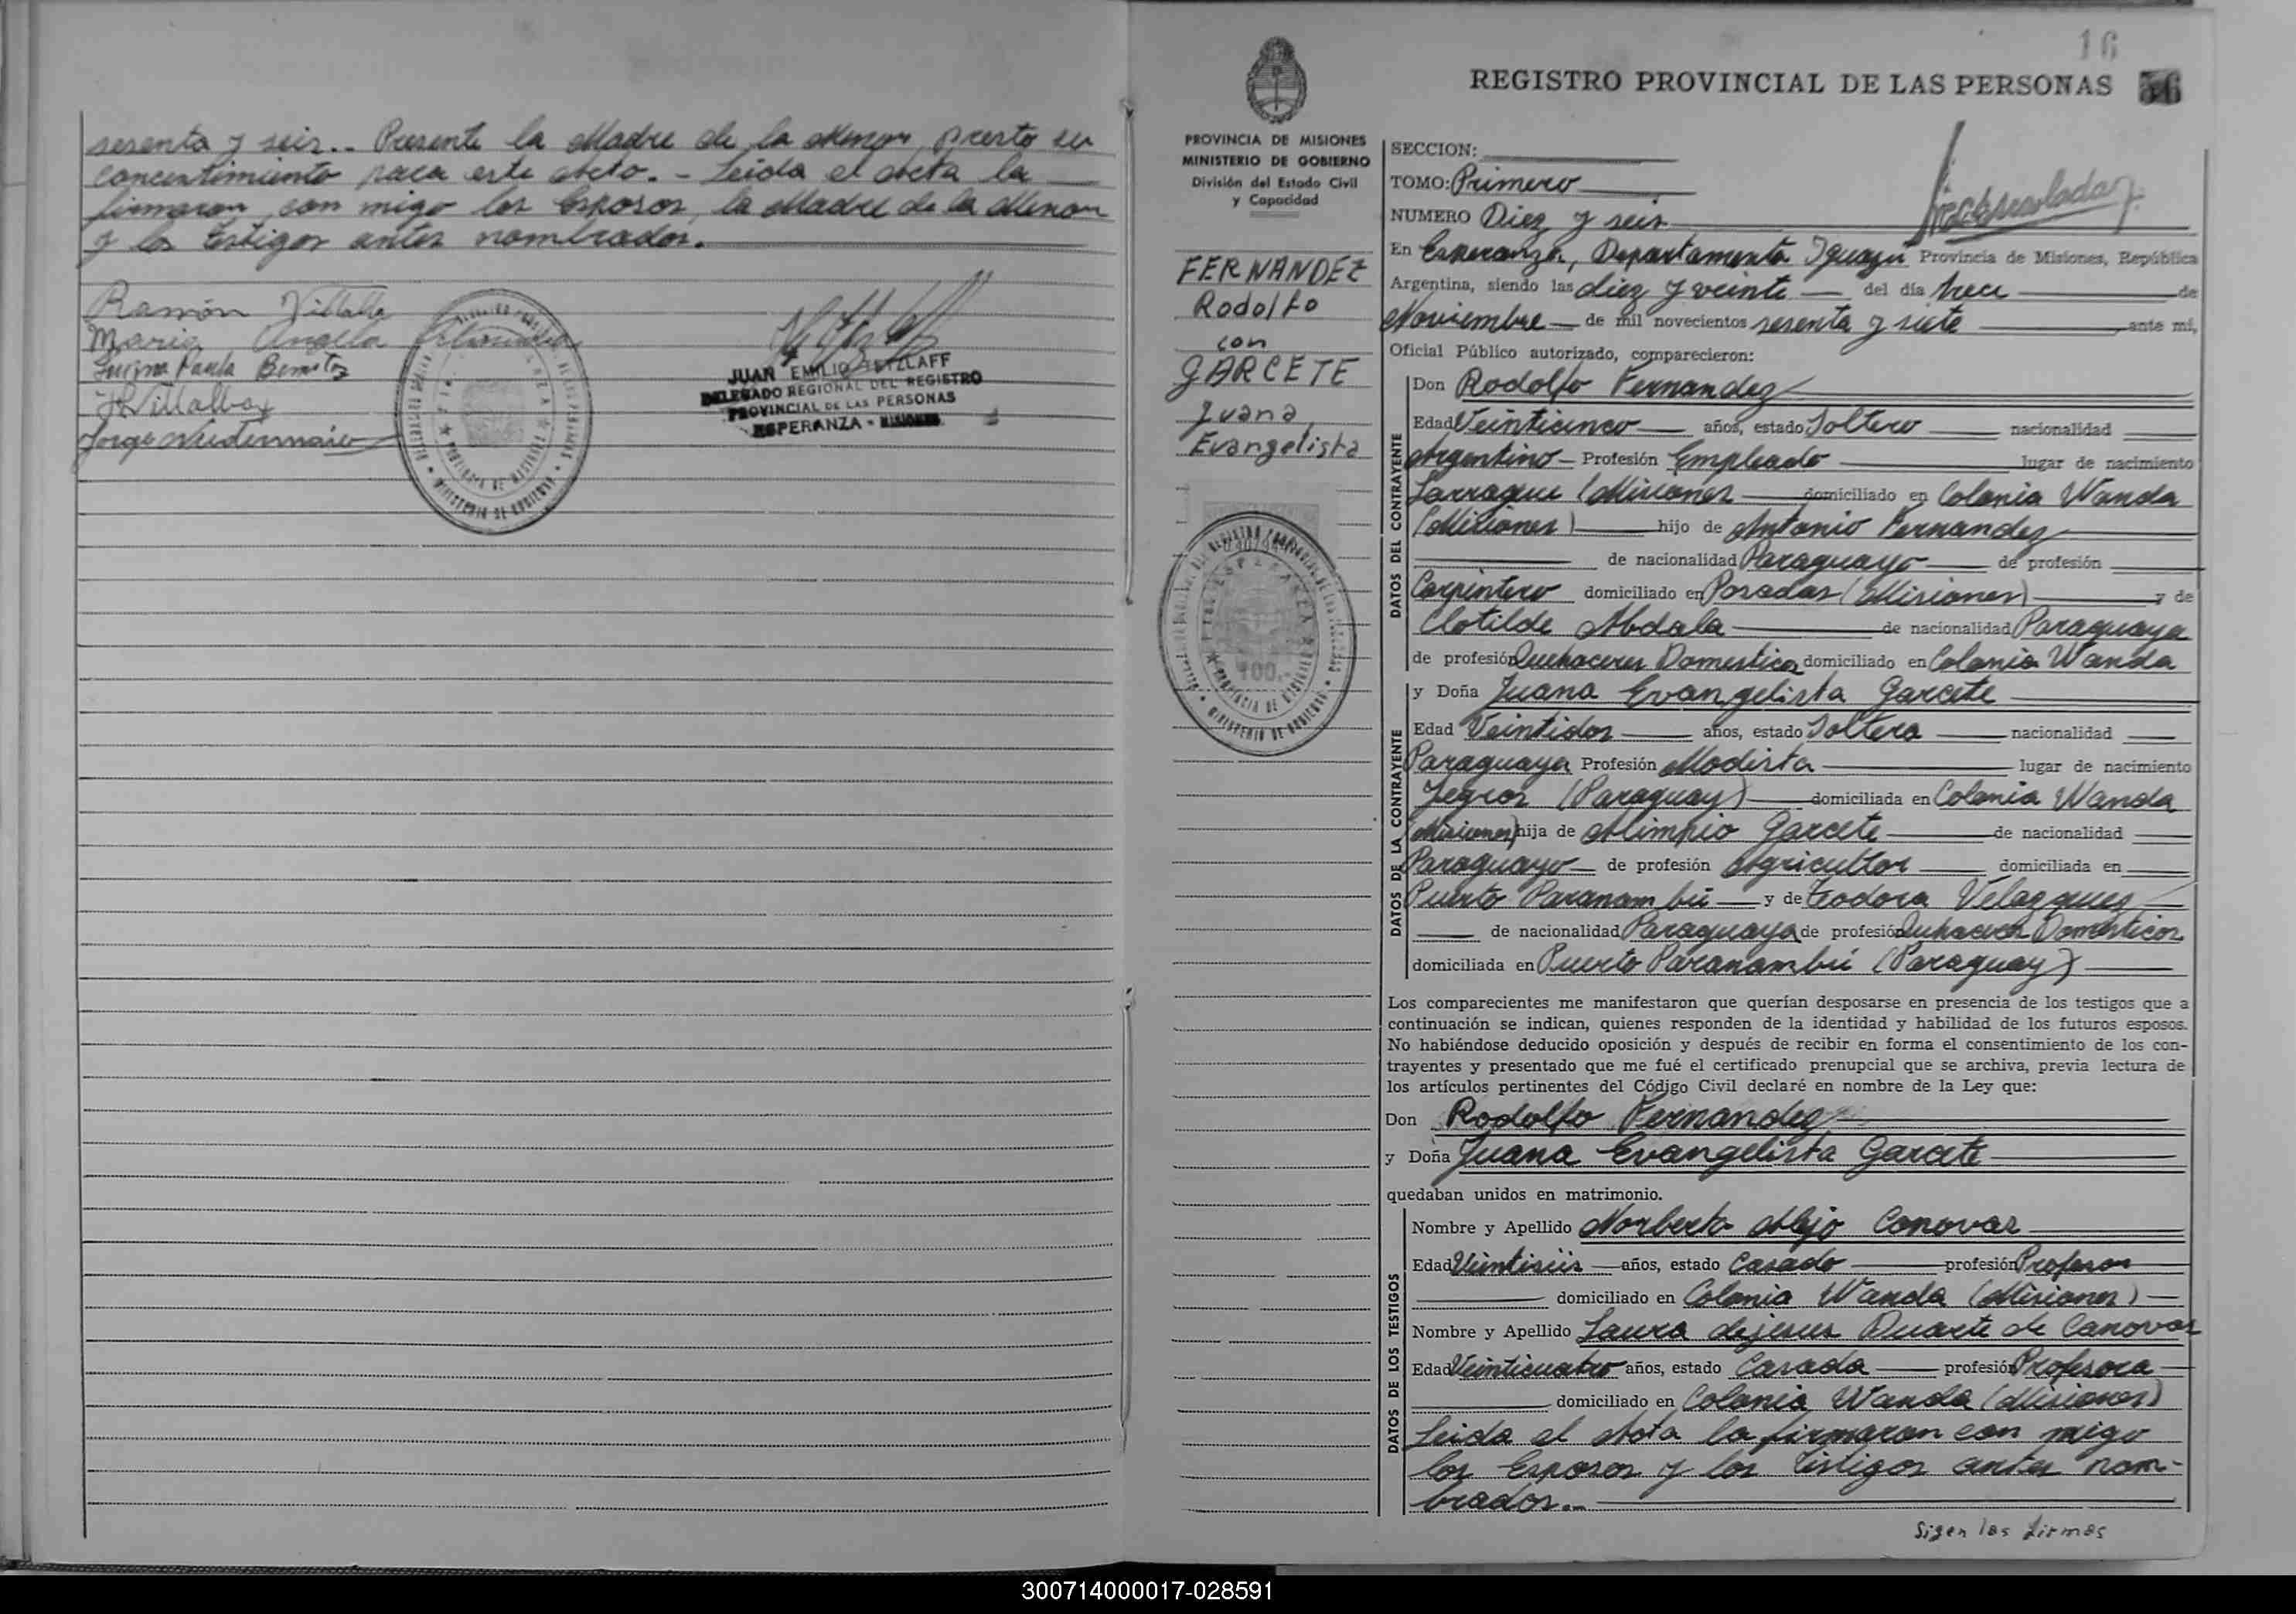 sesenta y seis.. Presente la Madre de la Menor, presto su
concentimiento para este Acto. - Leida el Acta la
firmaron con migo los Esposos, la Madre de la Menor
y los testigos antes nombrados.
Ramón Villalba
Maria Angela
Juana Paula Benitez
Villalba
Jorge
JUAN EMILIO TETZLAFF
DELEGADO REGIONAL DEL REGISTRO
PROVINCIAL DE LAS PERSONAS
ESPERANZA - MISIONES
16
REGISTRO PROVINCIAL DE LAS PERSONAS 56
PROVINCIA DE MISIONES
MINISTERIO DE GOBIERNO
División del Estado Civil
y Capacidad
FERNANDEZ
Rodolfo
con
GARCETE
Juana
Evangelista
100.-
SECCION:
TOMO: Primero
NUMERO Diez y seis
En Esperanza, Departamento Iguazú Provincia de Misiones, República
Argentina, siendo las diez y veinte del día trece de
Noviembre de mil novecientos sesenta y siete ante mí,
Oficial Público autorizado, comparecieron:
DATOS DEL CONTRAYENTE
Don Rodolfo Fernandez
Edad Veinticinco años, estado Soltero nacionalidad
Argentino Profesión Empleado lugar de nacimiento
(Misiones domiciliado en Colonia Wanda
(Misiones) hijo de Antonio Fernandez
de nacionalidad Paraguayo de profesión
Carpintero domiciliado en Posadas (Misiones) y de
Clotilde Abdala de nacionalidad Paraguaya
de profesión Quehaceres Domesticos domiciliado en Colonia Wanda
DATOS DE LA CONTRAYENTE
y Doña Juana Evangelista Garcete
Edad Veintidos años, estado Soltera nacionalidad
Paraguaya Profesión Modista lugar de nacimiento
Yegros (Paraguay) domiciliada en Colonia Wanda
(Misiones) hija de Alimpio Garcete de nacionalidad
Paraguayo de profesión Agricultor domiciliada en
Puerto Paranambú y de Teodora Velazquez
de nacionalidad Paraguaya de profesión Quehaceres Domesticos
domiciliada en Puerto Paranambú (Paraguay)
Los comparecientes me manifestaron que querían desposarse en presencia de los testigos que a
continuación se indican, quienes responden de la identidad y habilidad de los futuros esposos.
No habiéndose deducido oposición y después de recibir en forma el consentimiento de los con-
trayentes y presentado que me fué el certificado prenupcial que se archiva, previa lectura de
los artículos pertinentes del Código Civil declaré en nombre de la Ley que:
Don Rodolfo Fernandez
y Doña Juana Evangelista Garcete
quedaban unidos en matrimonio.
DATOS DE LOS TESTIGOS
Nombre y Apellido Norberto Alejo Canovas
Edad Veintiseis años, estado Casado profesión Profesor
domiciliado en Colonia Wanda (Misiones)
Nombre y Apellido Laura dejesus Duarte de Canovas
Edad Veinticuatro años, estado Casada profesión Profesora
domiciliado en Colonia Wanda (Misiones)
Leida el Acta la firmaron con migo
los Esposos y los testigos antes nom-
brados.
Sigen las firmas
300714000017-028591